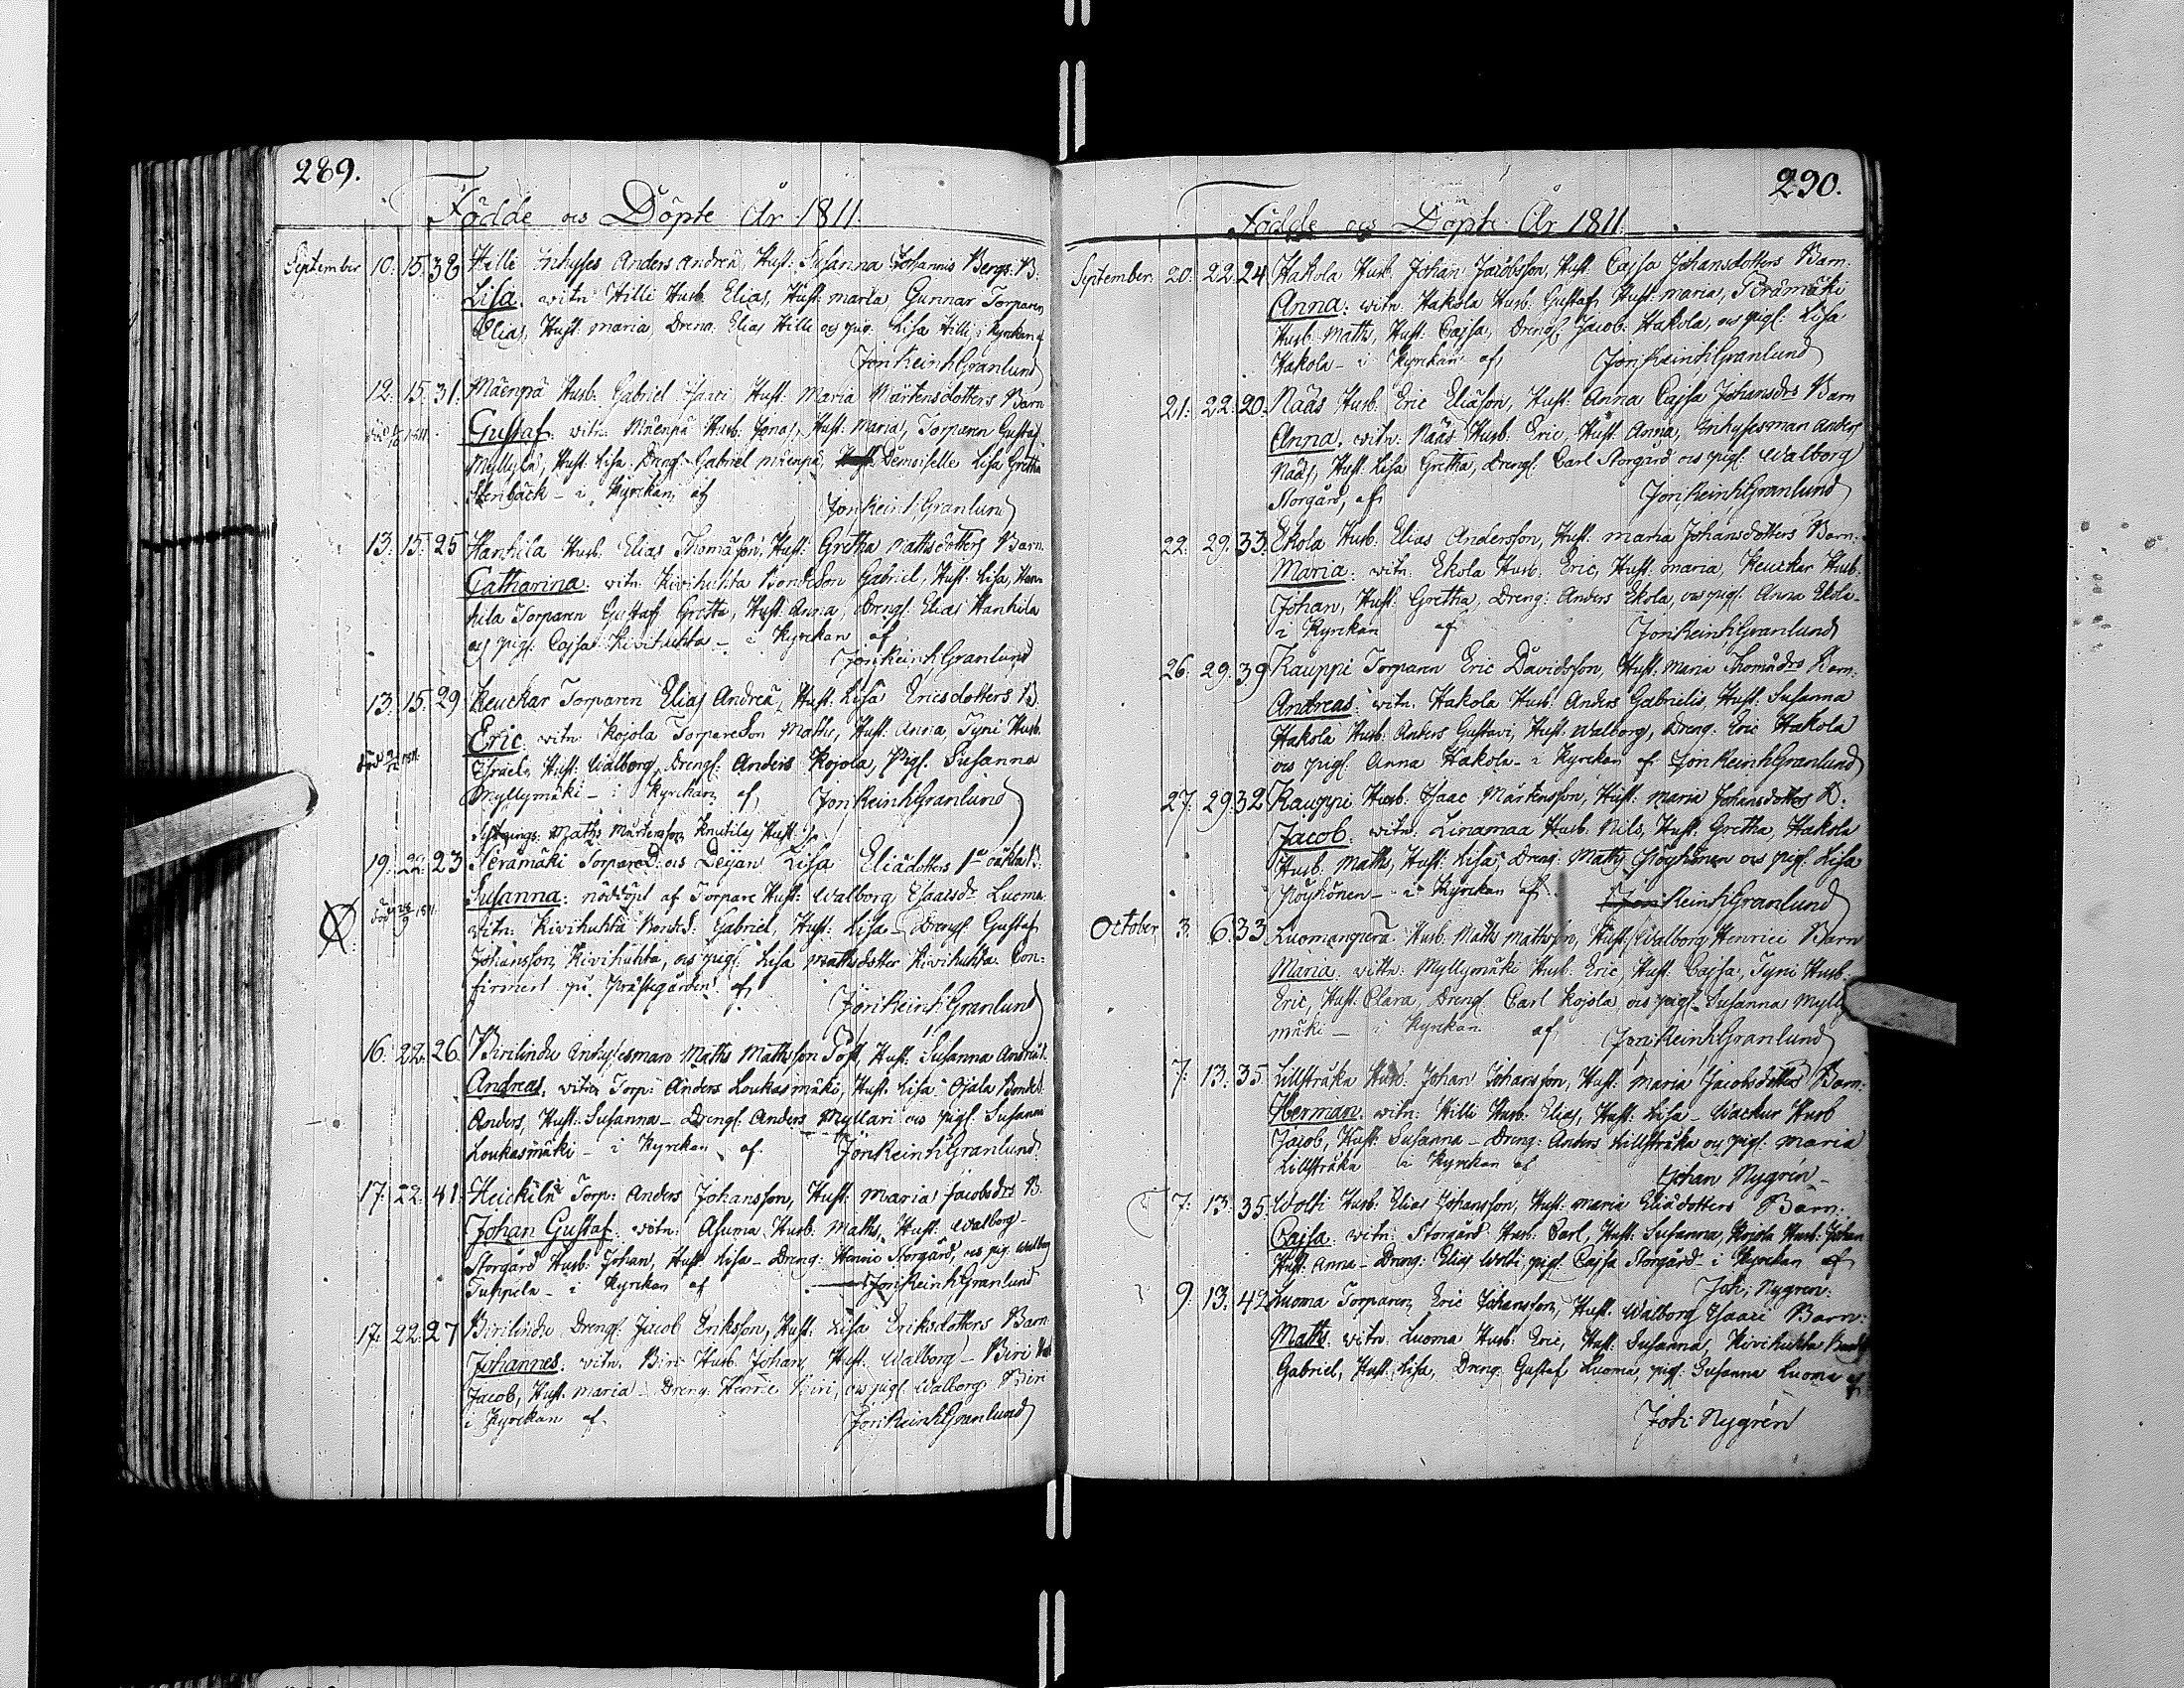 289.
Födde och Döpte År 1811.
September 10. 15. 38 Hilli Inhyses Anders Andreä, Hust: Susanna Johannis Bergs B:
Lisa. witn: Hilli Husb. Elias, Hust: maria, Gunnar Torparen
Elias, Hust: maria, Dreng: Elias Hilli och pig: Lisa Hilli i Kyrkan af
Jon Reinh Granlund
12. 15. 31. Mäenpä Husb. Gabriel Isaaci Hust: Maria Mårtensdotters Barn
Gustaf. witn: Mäenpä Husb. Jonas, Hust: maria, Torparen Gustaf
död 1811.
Myllylä, Hust: Lisa. Drengs: Gabriel mäenpä, Demoiselle Lisa Gretha
Stenbäck - i Kyrckan, af
Jon Reinh Granlund
13. 15. 25 Hanhila Husb. Elias Thomasson, Hust: Gretha mathsdotters Barn.
Catharina. witn: Kivihuhta BondeSon Gabriel, Hust: Lisa, Han-
hila Torparen Gustaf Gretha, Hust: Anna, Drengs: Elias Hanhila
och pigs: Cajsa Kivihuhta - i Kyrckan af
Jon Reinh Granlund
13. 15. 29 Keuckar Torparen Elias Andreä, Hust: Lisa Ericsdotters B.
Eric: witn: Kojola TorpareSon Maths, Hust: Anna, Tyni Husb.
död 1811.
Israel, Hust: Walborg, Drengs: Anders Kojola, Pigs: Susanna
Myllymäki - i Kyrckan af Jon Reinh Granlund
Maths Mårtensson Knutilas Hust:
19. 22. 23 Perämäki TorpareD: och Lisa Eliädotters 1a oäkta B:
Susanna: nöddöpt af Torpare Hust: Walborg Isaacsdr Luoma.
död 1811.
witn: Kivihuhta Bondes: Gabriel, Hust: Lisa - Drengs: Gustaf
Johansson Kivihuhta, och pigs: Lisa mathsdotter Kivihuhta. Con-
firmert på Prästegården af
Jon Reinh Granlund
16. 22. 26. Birilindu Inhysesman Maths Mathsson Hust: Susanna
Andreas. witn: Torp: Anders Loukasmäki, Hust: Lisa Ojala Bondes:
Anders, Hust: Susanna - Drengs: Anders Myllari och pigs: Susanna
Loukasmäki - i Kyrckan af. Jon Reinh Granlund.
17. 22. 41. Heickilä Torp: Anders Johansson, Hust: maria Jacobsdrs B.
Johan Gustaf. witn: Asuma Husb. maths, Hust: Walborg -
Storgård Husb: Johan, Hust: Lisa - Dreng: Henric Storgård, och pig: Walborg
Tuppela - i Kyrckan af Jon Reinh Granlund
17. 22. 27 Birilindu Drengs: Jacob Eriksson, Hust: Lisa Eriksdotters Barn
Johannes. witn: Biri Husb. Johan, Hust: Walborg - Biri
Jacob, Hust: maria - Dreng: Henric Biri, och pigs: Walborg Biri
i Kyrckan af. Jon Reinh Granlund
290.
Födde och Döpte År 1811
September. 20. 22. 24 Hakola Husb. Johan Jacobsson, Hust: Cajsa Johansdotters Barn:
Anna: witn: Hakola Husb. Gustaf, Hust: maria, Perämäki
Husb. Maths, Hust: Cajsa, Drengs: Jacob: Hakola, och pigs: Lisa
Hakola - i Kyrckan af Jon Reinh Granlund
21. 22. 20. Nääs Husb. Eric Eliäson, Hust: Anna Cajsa Johansdrs Barn
Anna. witn: Nääs Husb. Eric, Hust: Anna, Inhysesman Anders
Nääs, Hust: Lisa Gretha, Drengs: Carl Storgård och pigs: Walborg
Storgård, af Jon Reinh Granlund
22. 29. 33. Ekola Husb. Elias Andersson, Hust: maria Johansdotters Barn:
Maria. witn: Ekola Husb. Eric, Hust: maria, Keuckar Husb.
Johan, Hust: Gretha, Dreng: Anders Ekola, och pigs: Anna Ekola -
i Kyrckan af Jon Reinh Granlund
26. 29. 39 Kauppi Torparen Eric Davidsson, Hust: Maria Thomädrs Barn:
Andreas: witn: Hakola Husb. Anders Gabrielis, Hust: Susanna
Hakola Husb: Anders Gustavi, Hust: Walborg, Dreng: Eric Hakola
och pigs: Anna Hakola - i Kyrckan af Jon Reinh Granlund
27. 29. 32 Kauppi Husb. Isaac Mårtensson, Hust: maria Johansdotters B.
Jacob. witn: Linamaa Husb. Nils, Hust: Gretha, Hakola
Husb. Maths, Hust: Lisa, Dreng: Maths Pöyhönen och pigs: Lisa
Pöyhönen - i Kyrckan af. Jon Reinh Granlund
October 3. 6. 33 Luomanperä Husb. Maths Mathsson, Hust: Walborg Henrici Barn
Maria. witn: Myllymäki Husb. Eric, Hust: Cajsa, Tyni Husb:
Eric, Hust: Clara, Drengs: Carl Kojola och pigs: Susanna Mylly
mäki - i Kyrckan af Jon Reinh Granlund
7. 13. 35 Lillstråka Husb: Johan Johansson, Hust: Maria Jacobsdotters Barn:
Herman. witn: Hilli Husb. Elias, Hust: Lisa - Wackur Husb
Jacob, Hust: Susanna - Dreng: Anders Lillstråka och pigs: maria
Lillstråka i Kyrckan af Johan Nygrén -
7. 13. 35 Wolti Husb. Elias Johansson, Hust: maria Eliädotters Barn:
Cajsa. witn: Storgård Husb: Carl, Hust: Susanna, Kojola Husb: Johan
Hust: Anna - Dreng: Elias Wolti pigs: Cajsa Storgård - i Kyrckan af
Joh: Nygren:
9. 13. 42 Luoma Torparen Eric Johansson, Hust: Walborg Isaaci Barn:
Maths. witn: Luoma Husb: Eric, Hust: Susanna, Kivihuhta
Gabriel, Hust: Lisa, Dreng: Gustaf Luoma, pigs: Susanna Luoma af
Joh: Nygrén